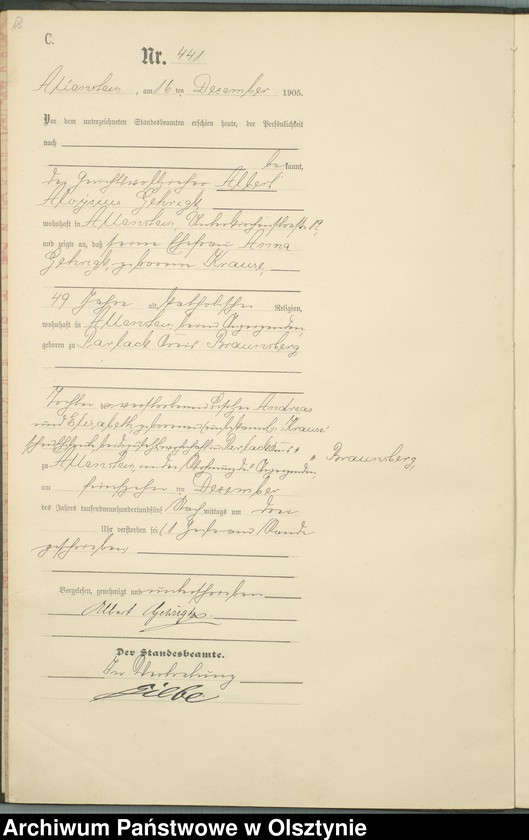 C.
Nr. 441
Allenstein, am 16 ten Dezember 1905.
Vor dem unterzeichneten Standesbeamten erschien heute, der Persönlichkeit
nach
be kannt,
der Gerichtsvollzieher Albert
Aloysius Gehrigk
wohnhaft in Allenstein,
und zeigte an, daß seine Ehefrau Anna
Gehrigk, geborene Krause,
49 Jahre alt, katholischer Religion,
wohnhaft in Allenstein, beim Anzeigenden,
geboren zu Parlack Kreis Braunsberg,
Tochter verstorbenen Andreas
und Elisabeth, geborenen Krause
Parlack Kreis Braunsberg,
zu Allenstein, in der Wohnung des Anzeigenden,
am fünfzehn ten Dezember
des Jahres tausendneunhundertundfünf Nach mittags um drei
Uhr verstorben sei. (1
geschrieben
Vorgelesen, genehmigt und unterschrieben
Albert Gehrigk
Der Standesbeamte.
In Vertretung
Archiwum Państwowe w Olsztynie